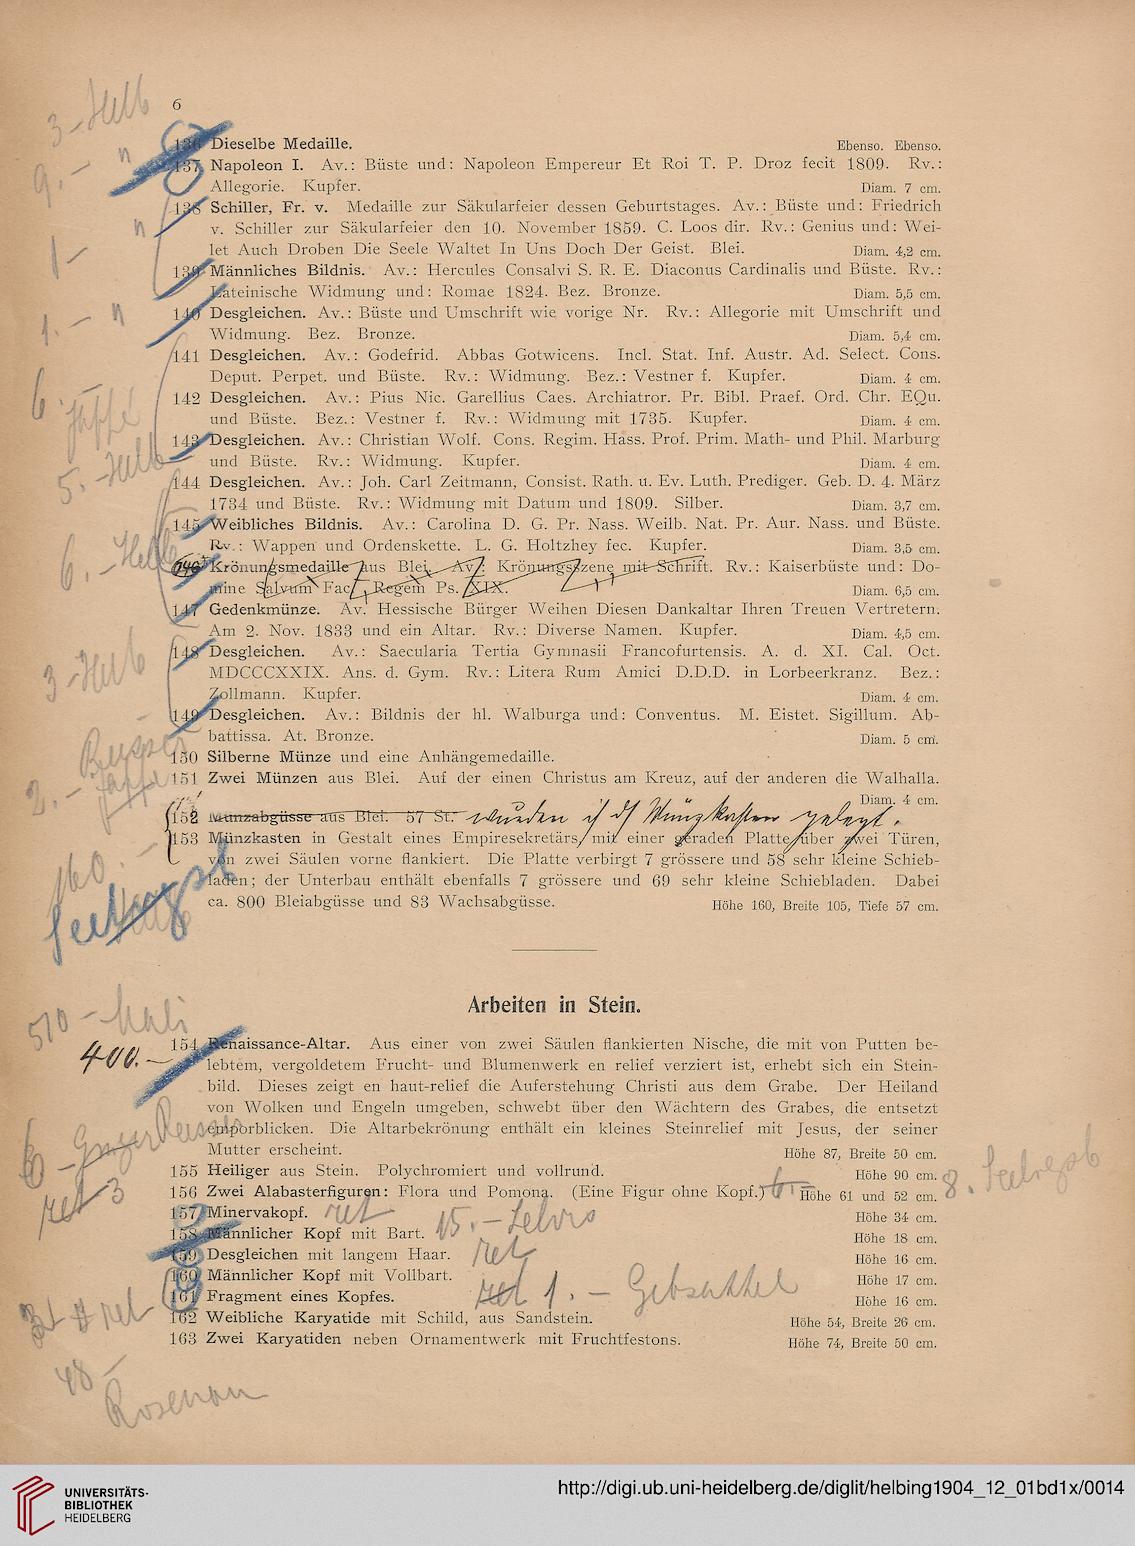 6
136 Dieselbe Medaille. Ebenso. Ebenso.
137 Napoleon I. Av.: Büste und: Napoleon Empereur Et Roi T. P. Droz fecit 1809. Rv.:
Allegorie. Kupfer. Diam. 7 cm.
138 Schiller, Fr. v. Medaille zur Säkularfeier dessen Geburtstages. Av.: Büste und: Friedrich
v. Schiller zur Säkularfeier den 10. November 1859. C. Loos dir. Rv.: Genius und: Wei-
let Auch Droben Die Seele Waltet In Uns Doch Der Geist. Blei. Diam. 4,2 cm.
139 Männliches Bildnis. Av.: Hercules Consalvi S. R. E. Diaconus Cardinalis und Büste. Rv.:
Lateinische Widmung und: Romae 1824. Bez. Bronze. Diam. 5,5 cm.
140 Desgleichen. Av.: Büste und Umschrift wie vorige Nr. Rv.: Allegorie mit Umschrift und
Widmung. Bez. Bronze. Diam. 5,4 cm.
141 Desgleichen. Av.: Godefrid. Abbas Gotwicens. Incl. Stat. Inf. Austr. Ad. Select. Cons.
Deput. Perpet. und Büste. Rv.: Widmung. Bez.: Vestner f. Kupfer. Diam. 4 cm.
142 Desgleichen. Av.: Pius Nic. Garellius Caes. Archiatror. Pr. Bibl. Praef. Ord. Chr. EQu.
und Büste. Bez.: Vestner f. Rv.: Widmung mit 1735. Kupfer. Diam. 4 cm.
143 Desgleichen. Av.: Christian Wolf. Cons. Regim. Hass. Prof. Prim. Math- und Phil. Marburg
und Büste. Rv.: Widmung. Kupfer. Diam. 4 cm.
144 Desgleichen. Av.: Joh. Carl Zeitmann, Consist. Rath. u. Ev. Luth. Prediger. Geb. D. 4. März
1734 und Büste. Rv.: Widmung mit Datum und 1809. Silber. Diam. 3,7 cm.
145 Weibliches Bildnis. Av.: Carolina D. G. Pr. Nass. Weilb. Nat. Pr. Aur. Nass. und Büste.
Rv.: Wappen und Ordenskette. L. G. Holtzhey fec. Kupfer. Diam. 3,5 cm.
146 Krönungsmedaille aus Blei. Av.: Krönungsszene mit Schrift. Rv.: Kaiserbüste und: Do-
mine Salvum Fac Regem Ps. XIX. Diam. 6,5 cm.
147 Gedenkmünze. Av. Hessische Bürger Weihen Diesen Dankaltar Ihren Treuen Vertretern.
Am 2. Nov. 1833 und ein Altar. Rv.: Diverse Namen. Kupfer. Diam. 4,5 cm.
148 Desgleichen. Av.: Saecularia Tertia Gymnasii Francofurtensis. A. d. XI. Cal. Oct.
MDCCCXXIX. Ans. d. Gym. Rv.: Litera Rum Amici D.D.D. in Lorbeerkranz. Bez.:
Zollmann. Kupfer. Diam. 4 cm.
149 Desgleichen. Av.: Bildnis der hl. Walburga und: Conventus. M. Eistet. Sigillum. Ab-
battissa. At. Bronze. Diam. 5 cm.
150 Silberne Münze und eine Anhängemedaille.
151 Zwei Münzen aus Blei. Auf der einen Christus am Kreuz, auf der anderen die Walhalla.
Diam. 4 cm.
152 Münzabgüsse aus Blei. 57 St. wurden Münzkasten gelegt.
153 Münzkasten in Gestalt eines Empiresekretärs, mit einer geraden Platte über zwei Türen,
von zwei Säulen vorne flankiert. Die Platte verbirgt 7 grössere und 58 sehr kleine Schieb-
laden; der Unterbau enthält ebenfalls 7 grössere und 69 sehr kleine Schiebladen. Dabei
ca. 800 Bleiabgüsse und 83 Wachsabgüsse. Höhe 160, Breite 105, Tiefe 57 cm.
Arbeiten in Stein.
400.—
154 Renaissance-Altar. Aus einer von zwei Säulen flankierten Nische, die mit von Putten be-
lebtem, vergoldetem Frucht- und Blumenwerk en relief verziert ist, erhebt sich ein Stein-
bild. Dieses zeigt en haut-relief die Auferstehung Christi aus dem Grabe. Der Heiland
von Wolken und Engeln umgeben, schwebt über den Wächtern des Grabes, die entsetzt
emporblicken. Die Altarbekrönung enthält ein kleines Steinrelief mit Jesus, der seiner
Mutter erscheint. Höhe 87, Breite 50 cm.
155 Heiliger aus Stein. Polychromiert und vollrund. Höhe 90 cm.
156 Zwei Alabasterfiguren: Flora und Pomona. (Eine Figur ohne Kopf.) 6.— Höhe 61 und 52 cm.
157 Minervakopf. ret Höhe 34 cm.
158 Männlicher Kopf mit Bart. 15.— Höhe 18 cm.
159 Desgleichen mit langem Haar. ret Höhe 16 cm.
160 Männlicher Kopf mit Vollbart. Höhe 17 cm.
161 Fragment eines Kopfes. ret 1.— Gebsattel Höhe 16 cm.
162 Weibliche Karyatide mit Schild, aus Sandstein. Höhe 54, Breite 26 cm.
163 Zwei Karyatiden neben Ornamentwerk mit Fruchtfestons. Höhe 74, Breite 50 cm.
48 —
Rosenau
UNIVERSITÄTS-
BIBLIOTHEK
HEIDELBERG
http://digi.ub.uni-heidelberg.de/diglit/helbing1904_12_01bd1x/0014